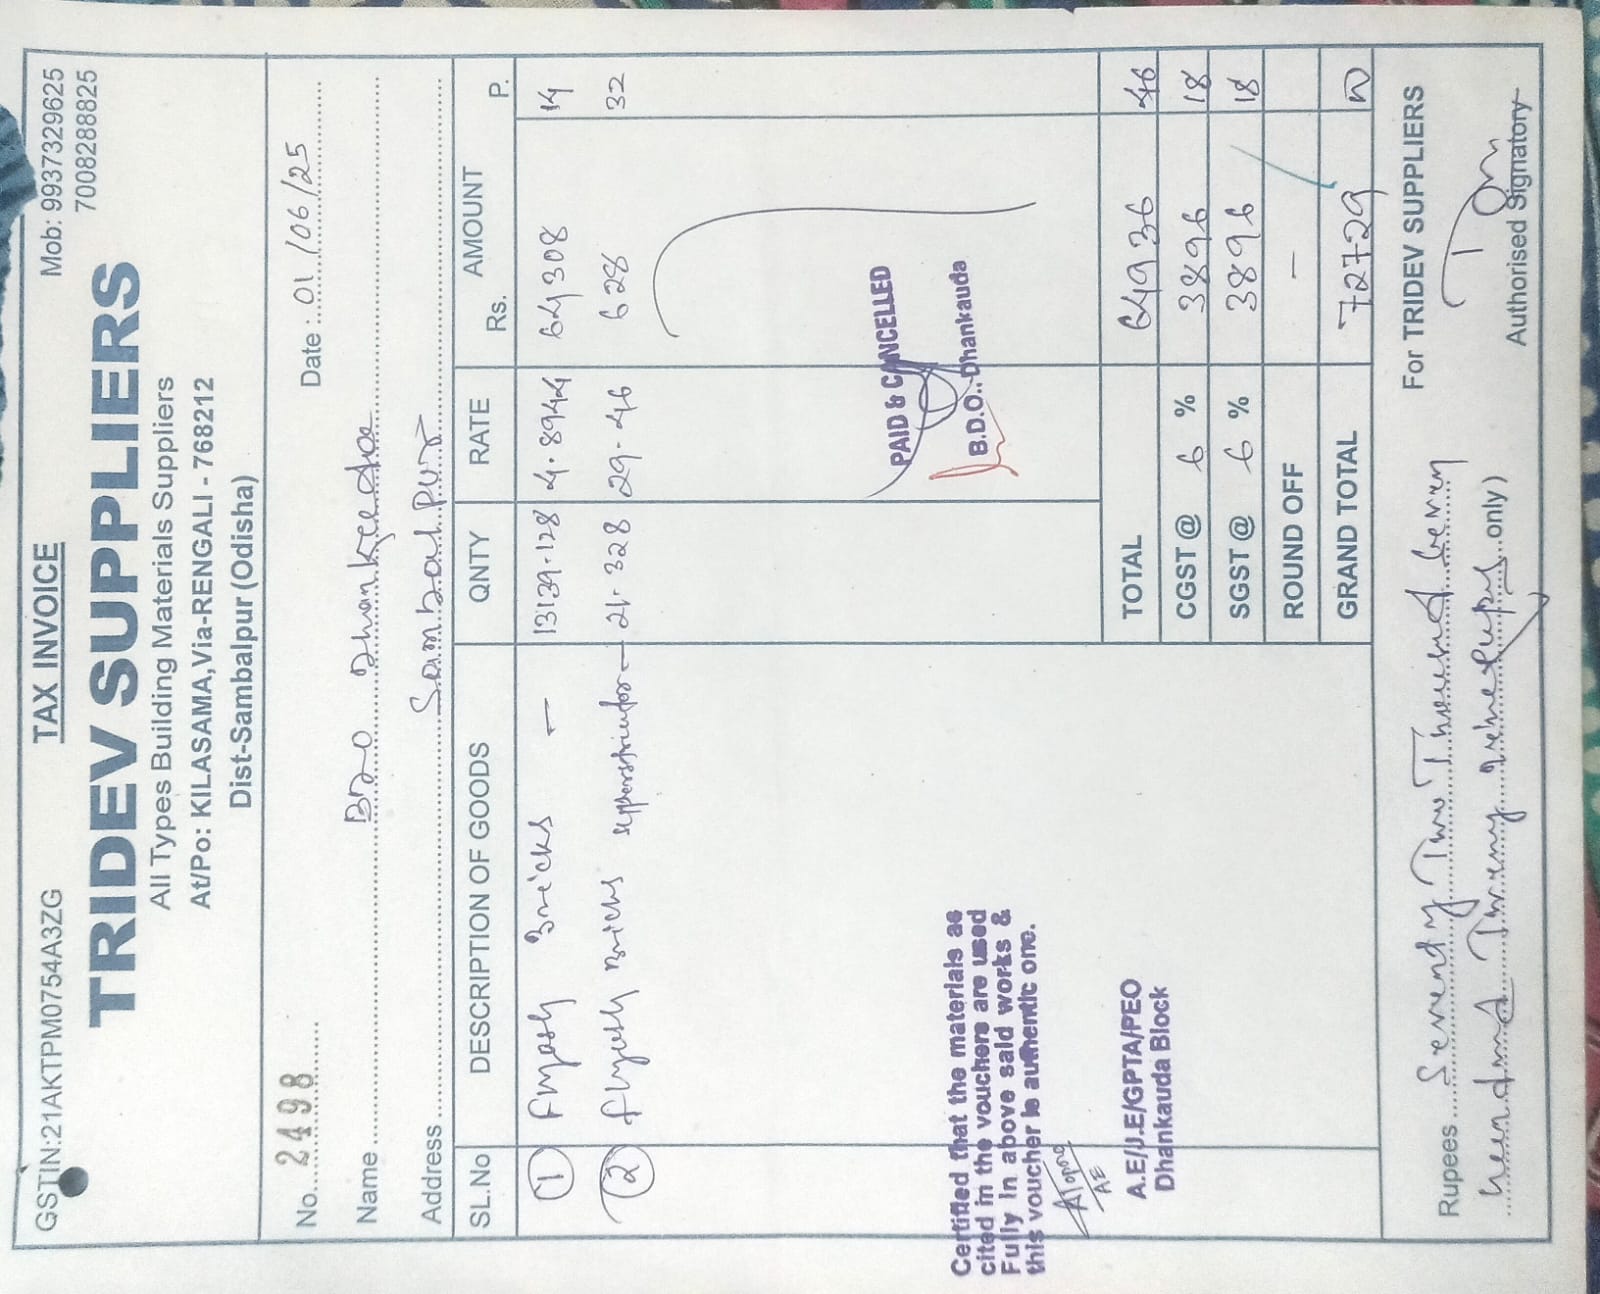 GSTIN:21AKTPM0754A3ZG TAX INVOICE Mob: 9937329625
7008288825
TRIDEV SUPPLIERS
All Types Building Materials Suppliers
At/Po: KILASAMA,Via-RENGALI - 768212
Dist-Sambalpur (Odisha)
No. 2498 Date : 01/06/25
Name BDO Dhankauda
Address Sambalpur
SL.No DESCRIPTION OF GOODS QNTY RATE AMOUNT
Rs. P.
1 Flyash Bricks — 13139.128 4.8944 64308 14
2 Flyash Bricks — 21.328 29.46 628 32
PAID & CANCELLED
B.D.O., Dhankauda
Certified that the materials as
cited in the vouchers are used
Fully in above said works &
this voucher is authentic one.
AE
A.E/J.E/GPTA/PEO
Dhankauda Block
TOTAL 64936 46
CGST @ 6 % 3896 18
SGST @ 6 % 3896 18
ROUND OFF —
GRAND TOTAL 72729
Rupees Seventy Two Thousand Seven
Hundred Twenty only)
For TRIDEV SUPPLIERS
Authorised Signatory